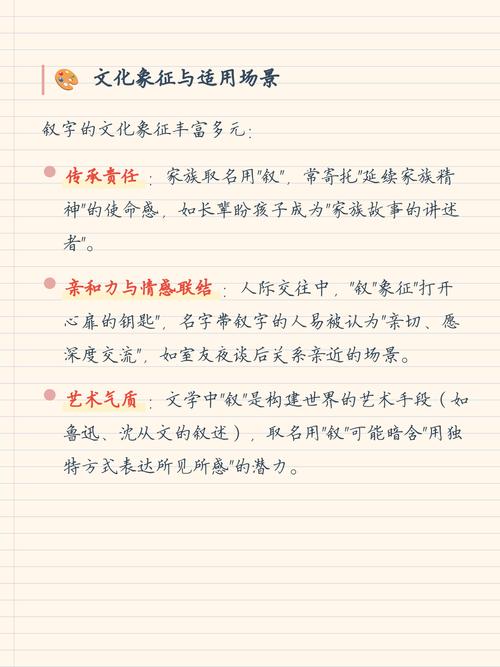 🎨 文化象征与适用场景
叙字的文化象征丰富多元：
传承责任：家族取名用"叙"，常寄托"延续家族精
神"的使命感，如长辈盼孩子成为"家族故事的讲述
者"。
亲和力与情感联结：人际交往中，"叙"象征"打开
心扉的钥匙"，名字带叙字的人易被认为"亲切、愿
深度交流"，如室友夜谈后关系亲近的场景。
艺术气质：文学中"叙"是构建世界的艺术手段（如
鲁迅、沈从文的叙述），取名用"叙"可能暗含"用独
特方式表达所见所感"的潜力。